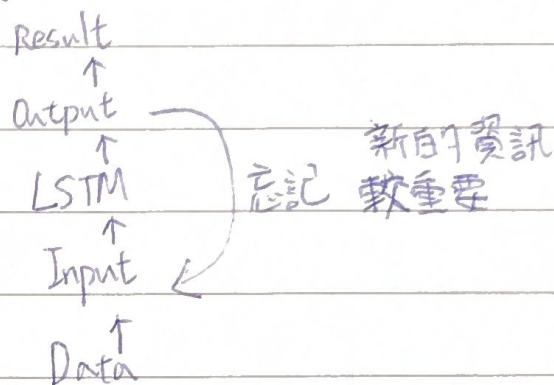 Result
↑
Output
↑
LSTM
↑
Input
↑
Data
忘記
新的資訊
較重要